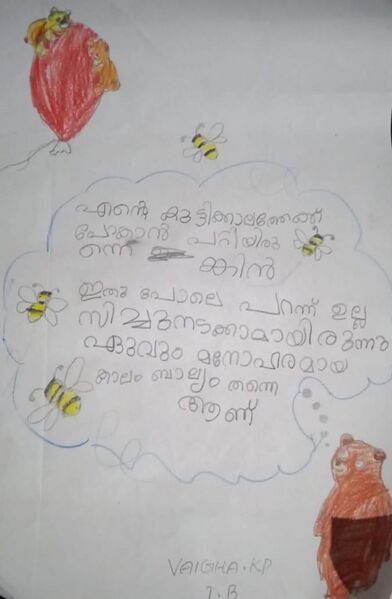 എന്റെ കുട്ടിക്കാലത്തേക്ക്
പോകാൻ പറ്റിയിരു
ന്നെ ങ്കിൽ
ഇതു പോലെ പറന്ന് ഉല്ല
സിച്ചുനടക്കാമായിരുന്നു
ഏറ്റവും മനോഹരമായ
കാലം ബാല്യം തന്നെ
ആണ്
VAIGHA.KP
7.B